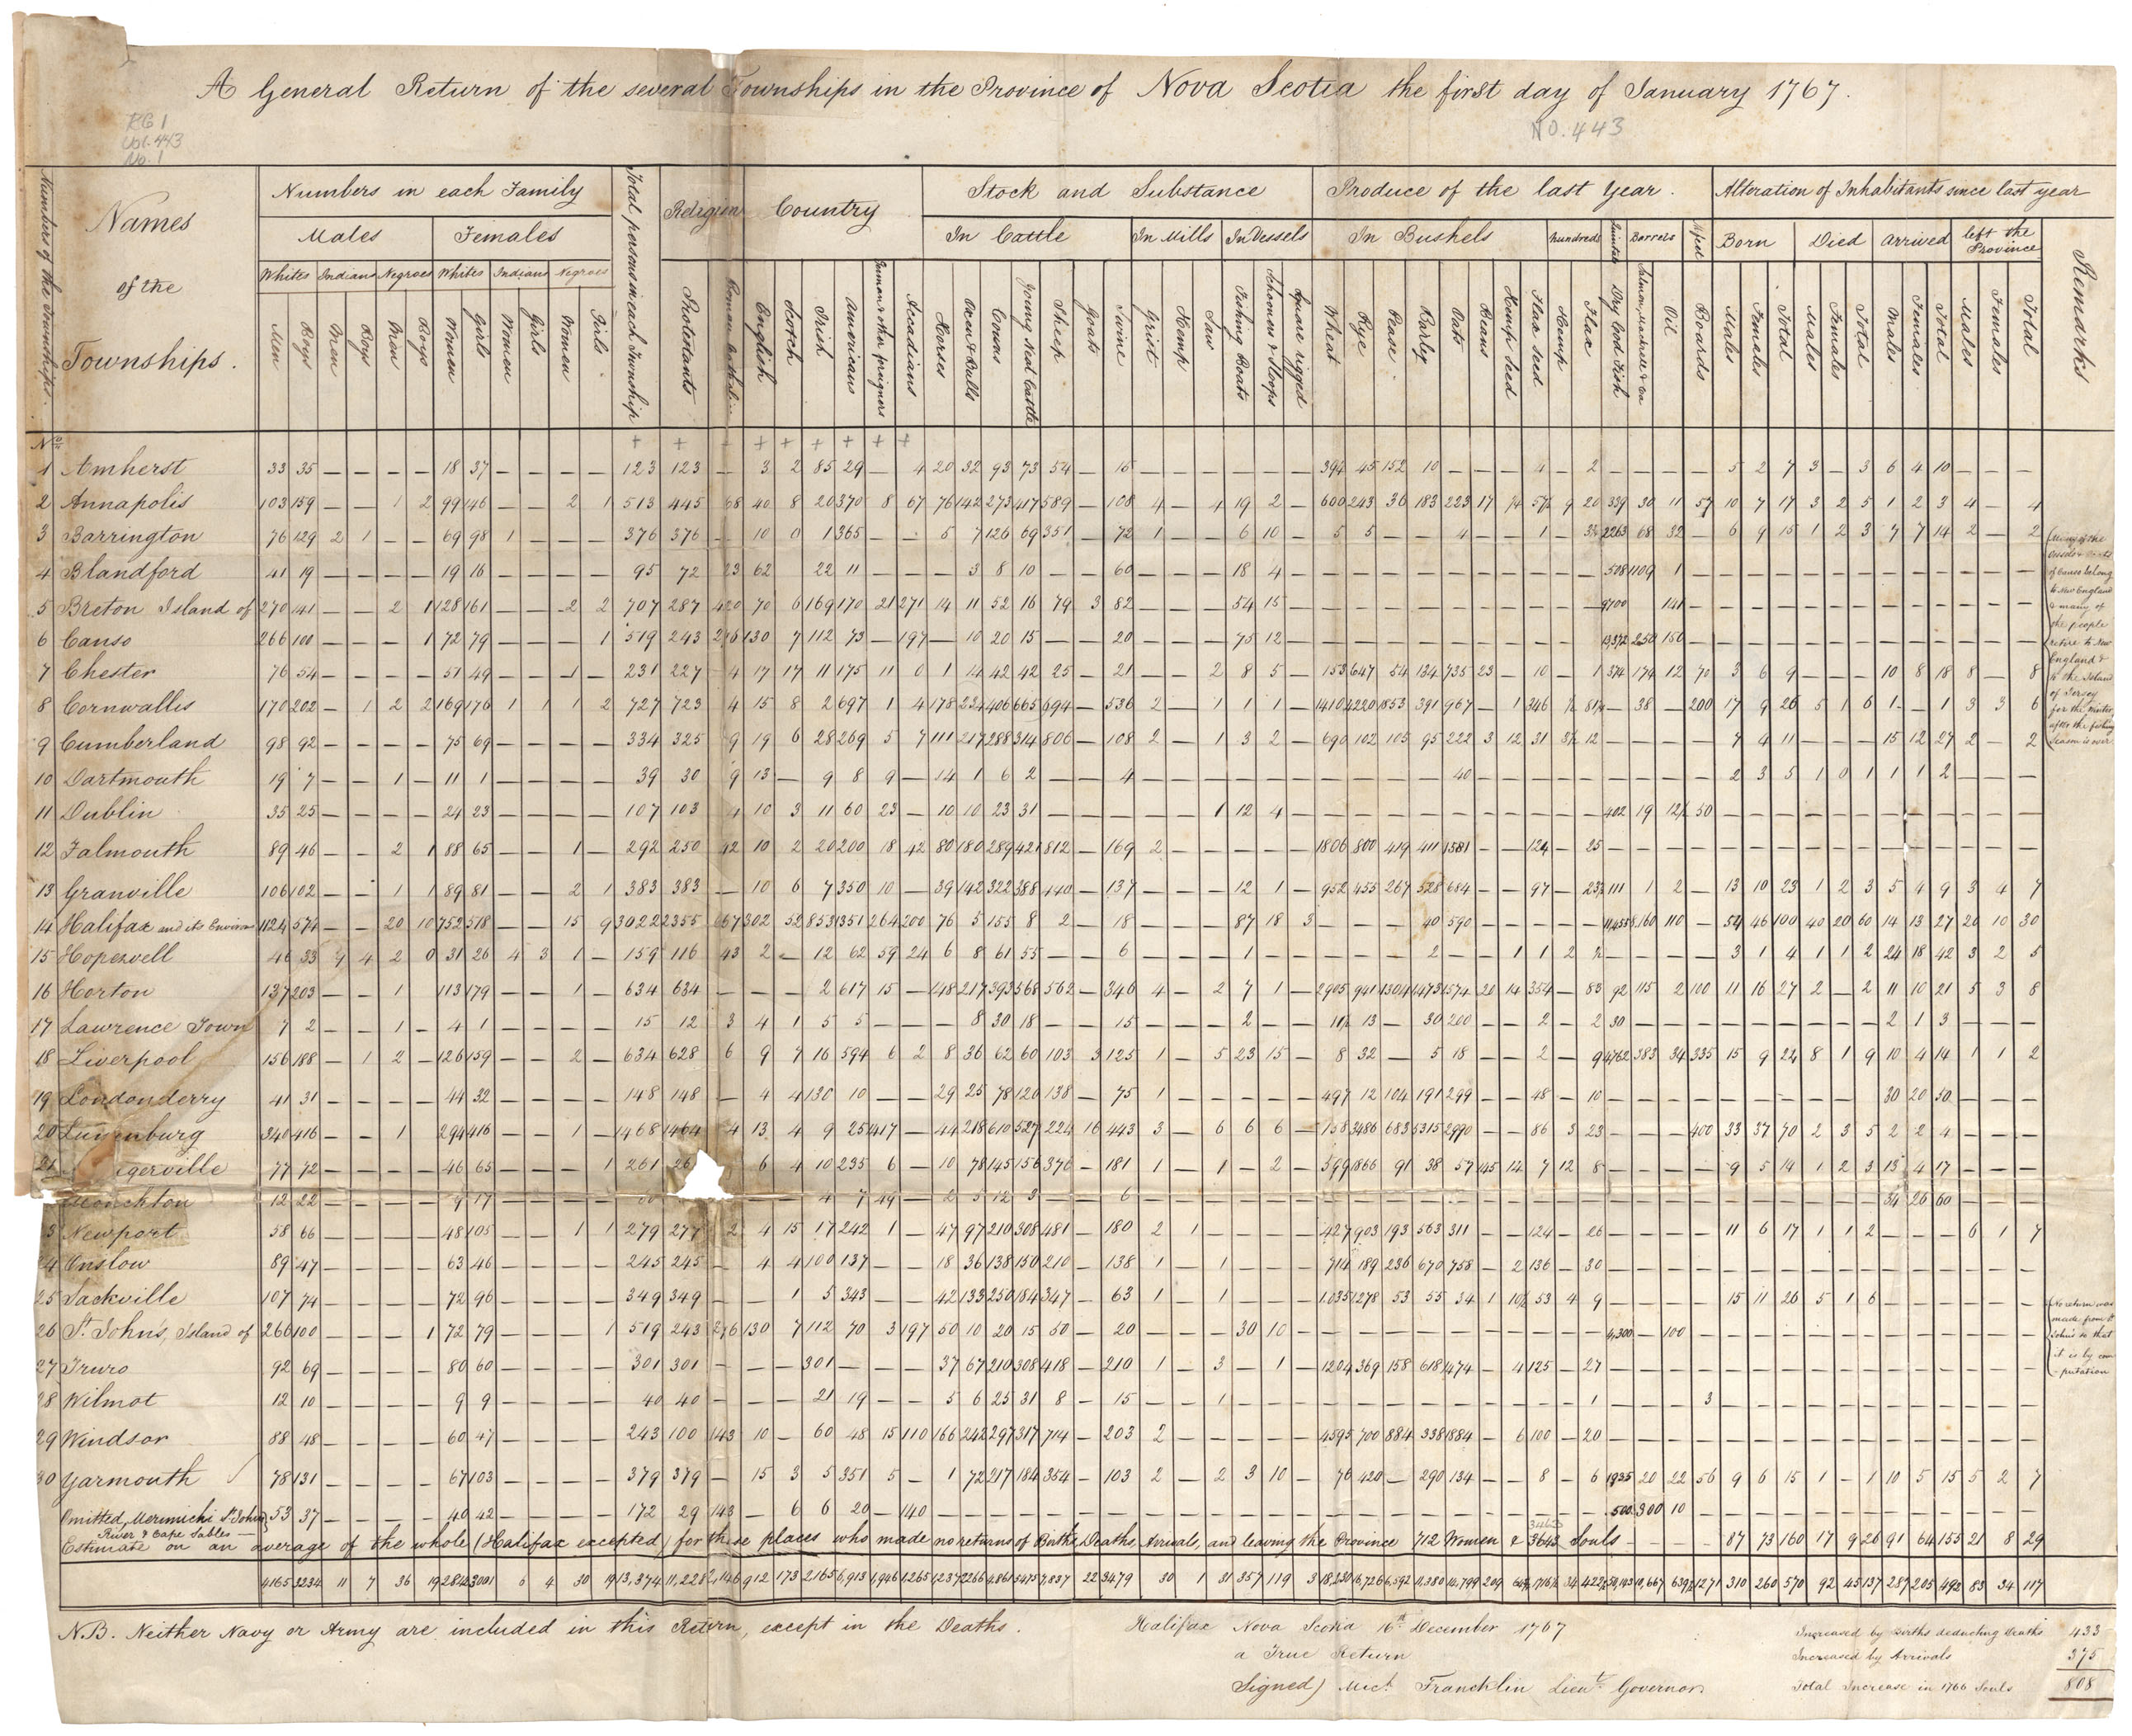 A General Return of the several Townships in the Province of Nova Scotia the first day of January 1767.
RG 1
Vol. 443
No. 1
NO. 443
Numbers of the Townships.
Names
of the
Townships.
Numbers in each Family
Males
Females
Whites Indians Negroes Whites Indians Negroes
Men Boys Men Boys Men Boys Women Girls Women Girls Women Girls
Total persons in each Township
Religion
Protestants
Country
English Scotch Irish Americans Acadians
Stock and Substance
In Cattle
Horses Oxen & Bulls Cows Young neat Cattle Sheep Goats Swine
In Mills
Grist Hemp Saw
In Vessels
Fishing Boats Schooners & Sloops Square rigged
Produce of the last Year.
In Bushels
Wheat Rye Pease Barley Oats Beans Hemp seed Flax seed
hundreds
Hemp Flax
Dry Cod Fish
Barrels
Oil
Boards
Alteration of Inhabitants since last year
Born Died arrived left the Province
Males Females Total Males Females Total Males Females Total Males Females Total
Remarks
No
1 Amherst 33 35 — — — — 18 37 — — — — 123 123 — 3 2 85 29 — 4 20 32 93 73 54 — 15 — — — — — — 394 45 152 10 — — — 4 — 2 — — — — 5 2 7 3 — 3 6 4 10 — — —
2 Annapolis 103 159 — — 1 2 99 146 — — 2 1 513 445 68 40 8 20 370 8 67 76 142 273 417 589 — 108 4 — 4 19 2 — 600 243 36 183 223 17 9 20 339 30 11 57 10 7 17 3 2 5 1 2 3 4 — 4
3 Barrington 76 129 2 1 — — 69 98 1 — — — 376 376 — 10 0 1 365 — — 5 7 126 69 351 — 72 1 — — 6 10 — 5 5 — — 4 — — 1 — 2263 68 32 — 6 9 15 1 2 3 7 7 14 2 — 2
4 Blandford 41 19 — — — — 19 16 — — — — 95 72 23 62 22 11 — — — 3 8 10 — — 60 — — — 18 4 — — — — — — — — — — — 508 1109 1 — — — — — — — — — — — — —
5 Breton Island of 270 141 — — 2 1 128 161 — — 2 2 707 287 420 70 6 169 170 21 271 14 11 52 16 79 3 82 — — — 54 15 — — — — — — — — — — — 9700 141 — — — — — — — — — — — — —
6 Canso 266 100 — — — 1 72 79 — — — 1 519 243 276 130 7 112 73 — 197 — 10 20 15 — — 20 — — — 75 12 — — — — — — — — — — — 13,372 250 150 — — — — — — — — — — — — —
7 Chester 76 54 — — — — 51 49 — — 1 — 231 227 4 17 17 11 175 11 0 1 14 42 42 25 — 21 — — 2 8 5 — 153 647 54 134 735 23 — 10 — 1 374 179 12 70 3 6 9 — — — 10 8 18 8 — 8
8 Cornwallis 170 202 — 1 2 2 169 176 1 1 1 2 727 723 4 15 8 2 697 1 4 178 234 406 665 694 — 536 2 — 1 1 1 — 1410 4220 1853 391 967 — 1 346 — 38 — 200 17 9 26 5 1 6 1 — 1 3 3 6
9 Cumberland 98 92 — — — — 75 69 — — — — 334 325 9 19 6 28 269 5 7 111 217 288 314 806 — 108 2 — 1 3 2 — 690 102 105 95 222 3 12 31 12 — — — — 7 4 11 — — — 15 12 27 2 — 2
10 Dartmouth 19 7 — — 1 — 11 1 — — — — 39 30 9 13 — 9 8 9 — 14 1 6 2 — — 4 — — — — — — — — — — 40 — — — — — — — — — 2 3 5 1 0 1 1 1 2 — — —
11 Dublin 35 25 — — — — 24 23 — — — — 107 103 4 10 3 11 60 23 — 10 10 23 31 — — — — — 1 12 4 — — — — — — — — — — — 402 19 12½ 50 — — — — — — — — — — — —
12 Falmouth 89 46 — — 2 1 88 65 — — 1 — 292 250 42 10 2 20 200 18 42 80 180 289 421 812 — 169 2 — — — — — 1806 800 419 411 1581 — — 124 — 25 — — — — — — — — — — — — — — — —
13 Granville 106 102 — — 1 1 89 81 — — 2 1 383 383 — 10 6 7 350 10 — 39 142 322 388 440 — 137 — — — 12 1 — 952 455 267 528 684 — — 97 — 111 1 2 — 13 10 23 1 2 3 5 4 9 3 4 7
14 Halifax and its Environs 1124 574 — — 20 10 752 518 — — 15 9 3022 2355 667 302 52 853 1351 264 200 76 5 155 8 2 — 18 — — — 87 18 3 — — — 40 590 — — — — — 110 — 54 46 100 40 20 60 14 13 27 20 10 30
15 Hopewell 46 33 9 4 2 0 31 26 4 3 1 — 159 116 43 2 — 12 62 59 24 6 8 61 55 — — 6 — — — 1 — — — — — 2 — — 1 1 2 ½ — — — — 3 1 4 1 1 2 24 18 42 3 2 5
16 Horton 137 203 — — 1 — 113 179 — — 1 — 634 634 — — — 2 617 15 — 148 217 393 568 562 — 346 4 — 2 7 1 — 2905 941 1304 1473 1574 20 14 354 — 83 92 115 2 100 11 16 27 2 — 2 11 10 21 5 3 8
17 Lawrence Town 7 2 — — 1 — 4 1 — — — — 15 12 3 4 1 5 5 — — — 8 30 18 — — 15 — — — 2 — — 11½ 13 — 30 200 — — 2 — 2 30 — — — — — — — — — 2 1 3 — — —
18 Liverpool 156 188 — 1 2 — 126 159 — — 2 — 634 628 6 9 7 16 594 6 2 8 36 62 60 103 3 125 1 — 5 23 15 — 8 32 — 5 18 — — 2 — 9 4762 383 34 335 15 9 24 8 1 9 10 4 14 1 1 2
19 Londonderry 41 31 — — — — 44 32 — — — — 148 148 — 4 4 130 10 — — 29 25 78 120 138 — 75 1 — — — — — 497 12 104 191 299 — — 48 — 10 — — — — — — — — — — 30 20 50 — — —
20 Lunenburg 340 416 — — 1 — 294 416 — — 1 — 1468 1464 4 13 4 9 25 1417 — 44 218 610 527 224 16 443 3 — 6 6 6 — 158 3486 683 5315 2990 — — 86 3 23 — — — 400 33 37 70 2 3 5 2 2 4 — — —
21 gerville 77 72 — — — — 46 65 — — — 1 261 26 6 4 10 235 6 — 10 78 145 156 376 — 181 1 — 1 — 2 — 599 1866 91 38 57 145 14 7 12 8 — — — — 9 5 14 1 2 3 13 4 17 — — —
Monckton 12 22 — — — — 9 17 — — — — — — 4 7 49 — 2 5 12 3 — — 6 — — — — — — — — — — — — — — — — — — — — — — — — — — 34 26 60 — — —
3 Newport 58 66 — — — — 48 105 — — 1 1 279 277 2 4 15 17 242 1 — 47 97 210 308 481 — 180 2 1 — — — — 427 903 193 563 311 — — 124 — 26 — — — — 11 6 17 1 1 2 — — — 6 1 7
4 Onslow 89 47 — — — — 63 46 — — — — 245 245 — 4 4 100 137 — — 18 36 138 150 210 — 138 1 — 1 — — — 714 189 236 670 758 — 2 136 — 30 — — — — — — — — — — — — — — — —
25 Sackville 107 74 — — — — 72 96 — — — — 349 349 — — 1 5 343 — — 42 133 250 184 347 — 63 1 — 1 — — — 1035 1278 53 55 34 1 10½ 53 4 9 — — — — 15 11 26 5 1 6 — — — — — —
26 St. John's, Island of 266 100 — — — 1 72 79 — — — 1 519 243 276 130 7 112 70 3 197 50 10 20 15 50 — 20 — — — 30 10 — — — — — — — — — — — 4,300 — 100 — — — — — — — — — — — — —
27 Truro 92 69 — — — — 80 60 — — — — 301 301 — — — 301 — — — 37 67 210 308 418 — 210 1 — 3 — 1 — 1204 369 158 618 1474 — 4 125 — 27 — — — — — — — — — — — — — — — —
28 Wilmot 12 10 — — — — 9 9 — — — — 40 40 — — — 21 19 — — 5 6 25 31 8 — 15 — — 1 — — — — — — — — — — — — 1 — — — 3 — — — — — — — — — — — —
29 Windsor 88 48 — — — — 60 47 — — — — 243 100 143 10 — 60 48 15 110 166 242 297 317 714 — 203 2 — — — — — 4595 700 884 338 1884 — 6 100 — 20 — — — — — — — — — — — — — — — —
30 Yarmouth 78 131 — — — — 67 103 — — — — 379 379 — 15 3 5 351 5 — 1 72 217 184 354 — 103 2 — 2 3 10 — 76 420 — 290 134 — — 8 — 6 1935 20 22 56 9 6 15 1 — 1 10 5 15 5 2 7
Omitted, Merimichi St. John 53 37 — — — — 40 42 — — — — 172 29 143 — 6 6 20 — 140 — — — — — — — — — — — — — — — — — — — — — — — 500 300 10 — — — — — — — — — — — — —
River & Cape Sables —
Estimate on an average of the whole (Halifax excepted) for those places who made no returns of Births, Deaths, Arrivals, and leaving the Province 712 Women & 3643 Souls — — — — 87 73 160 17 9 26 91 64 155 21 8 29
4165 3234 11 7 36 19 3001 6 4 30 19 13,374 11,228 2,146 912 173 2165 6,913 1,946 1,265 1,237 2266 4,861 5475 7,837 22 3479 30 1 31 357 119 3 10,667 1271 310 260 570 92 45 137 287 205 493 83 34 117
Many of the
Vessels & Boats
of Canso belong
to New England
& many of
the people
retire to New
England &
to the Island
of Jersey
for the winter,
after the fishing
Season is over
No return was
made from St
John's so that
it is by com
-putation
N.B. Neither Navy or Army are included in this Return, except in the Deaths.
Halifax Nova Scotia 16th December 1767
a True Return
Signed) Michl. Francklin Lieut. Governor.
Increased by Births deducting Deaths 433
Increased by Arrivals 375
Total Increase in 1766 Souls 808